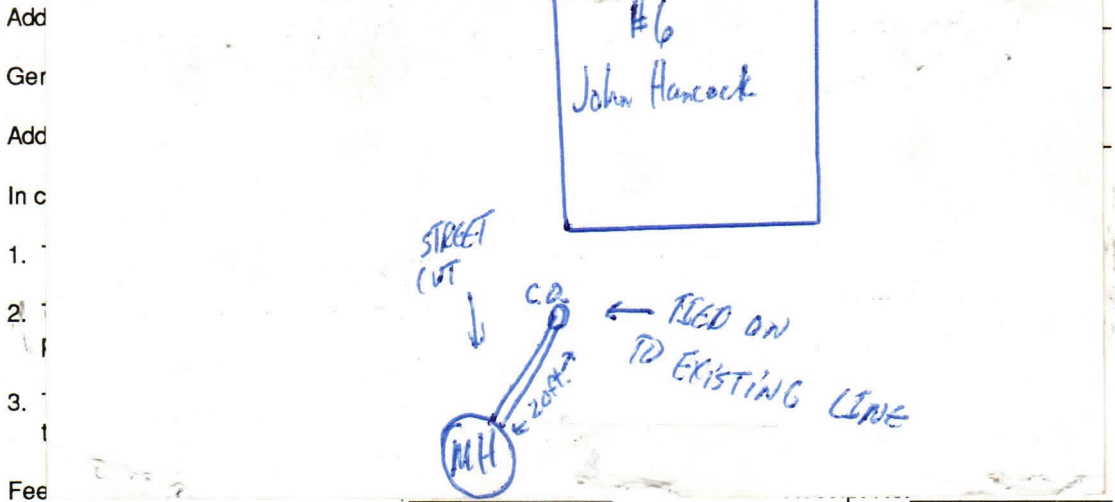 Add
Ger
Add
In c
1.
2.
3.
t
Fee
#6
John Hancock
STREET
CUT
C.O.
← TIED ON
TO EXISTING LINE
20ft.
MH